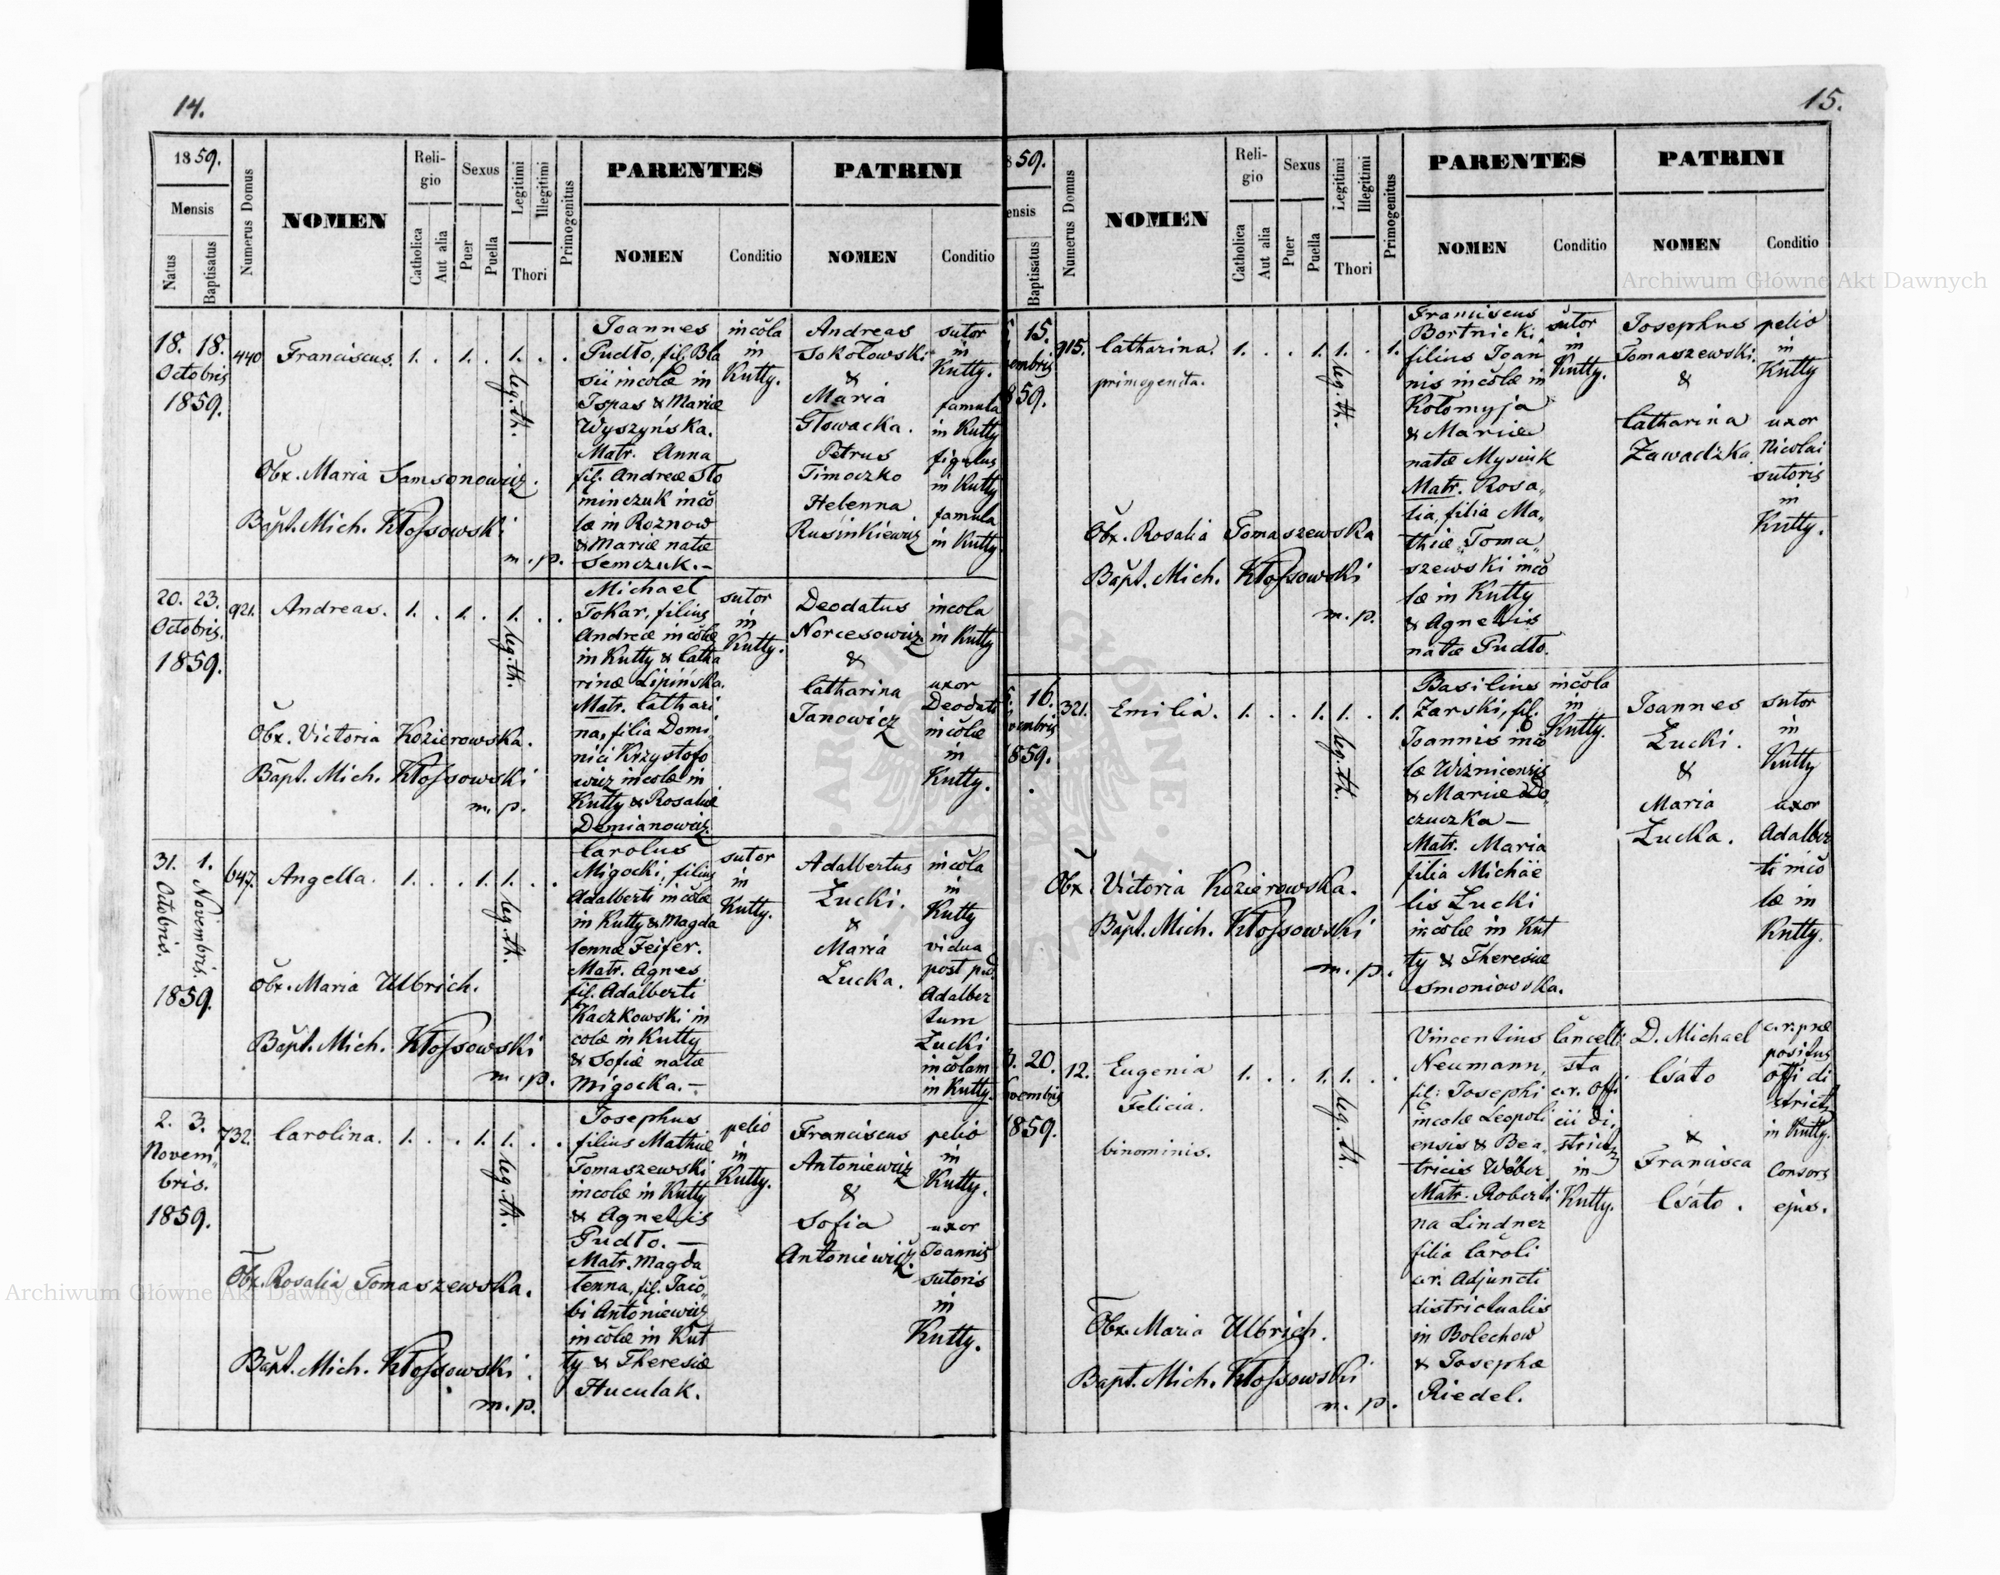 14.
1859.
Mensis
Natus
Baptisatus
Numerus Domus
NOMEN
Religio
Catholica
Aut alia
Sexus
Puer
Puella
Legitimi
Illegitimi
Thori
Primogenitus
PARENTES
NOMEN
Conditio
PATRINI
NOMEN
Conditio
18. 18.
Octobris
1859.
440
Franciscus.
1. . 1. . 1. . .
leg. th.
Obx. Maria Samsonowicz.
Bapt. Mich. Kłossowski
m. p.
Joannes
Pudło, fil. Bla
sii incolæ in
Ispas & Mariæ
Wyszyńska.
Matr. Anna
fil. Andreæ Sło
minczuk inco
læ in Rożnow
& Mariæ natæ
Semczuk. –
incola
in
Kutty.
Andreas
Sokołowski
&
Maria
Głowacka.
Petrus
Timoczko
Helenna
Rusinkiewicz
sutor
in
Kutty.
famula
in Kutty
figulus
in Kutty
famula
in Kutty
20. 23.
Octobris.
1859.
921.
Andreas.
1. . 1. . 1. . .
leg. th.
Obx. Victoria Kozierowska.
Bapt. Mich. Kłossowski
m. p.
Michael
Tokar, filius
Andreæ incolæ
in Kutty & Catha
rinæ Lipińska.
Matr. Cathari
na, filia Domi
nici Krzystofo
wicz incolæ in
Kutty & Rosaliæ
Demianowicz.
sutor
in
Kutty.
Deodatus
Norcesowicz
&
Catharina
Janowicz
incola
in Kutty
uxor
Deodati
incolæ
in
Kutty.
31. 1.
Octobris.
Novembris.
1859.
647.
Angella.
1. . . 1. 1. . .
leg. th.
Obx. Maria Ulbrich.
Bapt. Mich. Kłossowski
m. p.
Carolus
Migocki, filius
Adalberti incolæ
in Kutty & Magda
lennæ Feifer.
Matr. Agnes
fil. Adalberti
Kaczkowski in
colæ in Kutty
& Sofiæ natæ
Migocka. –
sutor
in
Kutty.
Adalbertus
Łucki.
&
Maria
Łucka.
incola
in
Kutty
vidua
post p.d.
Adalber
tum
Łucki
incolam
in Kutty.
2. 3.
Novem
bris.
1859.
732.
Carolina.
1. . . 1. 1. . .
leg. th.
Obx. Rosalia Tomaszewska.
Bapt. Mich. Kłossowski.
m. p.
Josephus
filius Mathiæ
Tomaszewski
incolæ in Kutty
& Agnetis
Pudło. –
Matr. Magda
lenna, fil. Jaco
bi Antoniewicz
incolæ in Kut
ty & Theresiæ
Huculak.
pelio
in
Kutty.
Franciscus
Antoniewicz
&
Sofia
Antoniewicz.
pelio
in
Kutty.
uxor
Joannis
sutoris
in
Kutty.
15.
859.
ensis
Baptisatus
Numerus Domus
NOMEN
Religio
Catholica
Aut alia
Sexus
Puer
Puella
Legitimi
Illegitimi
Thori
Primogenitus
PARENTES
NOMEN
Conditio
PATRINI
NOMEN
Conditio
15.
embris
859.
915.
Catharina.
primogenita.
1. . . 1. 1. . 1.
leg. th.
Obx. Rosalia Tomaszewska
Bapt. Mich. Kłossowski
m. p.
Franciscus
Bortnicki,
filius Joan
nis incolæ in
Kołomyja
& Mariæ
natæ Mysiuk
Matr. Rosa„
lia, filia Ma„
thiæ Toma„
szewski inco
læ in Kutty
& Agnetis
natæ Pudło.
sutor
in
Kutty.
Josephus
Tomaszewski.
&
Catharina
Zawadzka.
pelio
in
Kutty
uxor
Nicolai
sutoris
in
Kutty.
16.
vembris
859.
321.
Emilia.
1. . . 1. 1. . 1.
leg. th.
Obx. Victoria Kozierowska.
Bapt. Mich. Kłossowski
m. p.
Basilius
Zarski, fil.
Joannis inco
læ Wiznicensis
& Mariæ
czuczka –
Matr. Maria
filia Michäe
lis Łucki
incolæ in Kut
ty & Theresiæ
Smoniowska.
incola
in
Kutty.
Joannes
Łucki.
&
Maria
Łucka.
sutor
in
Kutty
uxor
Adalber
ti inco
læ in
Kutty.
20.
vembris
859.
12.
Eugenia
Felicia.
binominis.
1. . . 1. 1. . .
leg. th.
Obx. Maria Ulbrich.
Bapt. Mich. Kłossowski
m. p.
Vincentius
Neumann,
fil: Josephi
incolæ Leopoli
ensis & Bea„
tricis Wöber
Matr. Roberti
na Lindner
filia Caroli
c.r. Adjuncti
districtualis
in Bolechow
& Josephæ
Riedel.
Cancelli
sta
c.r. Offi
cii di„
strict
in
Kutty.
D. Michael
Csàto
&
Francisca
Csàto.
c.r. præ
positus
offi di
strict
in Kutty.
Consors
ejus.
Archiwum Główne Akt Dawnych
Archiwum Główne Akt Dawnych